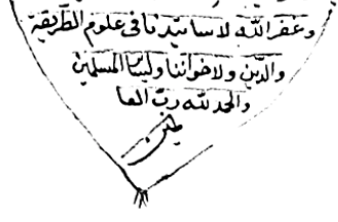 وغفر الله لاساتيدنا فى علوم الطريقة
والدين ولاخواننا ولسائر المسلمين
والحمد لله رب العا
لمين